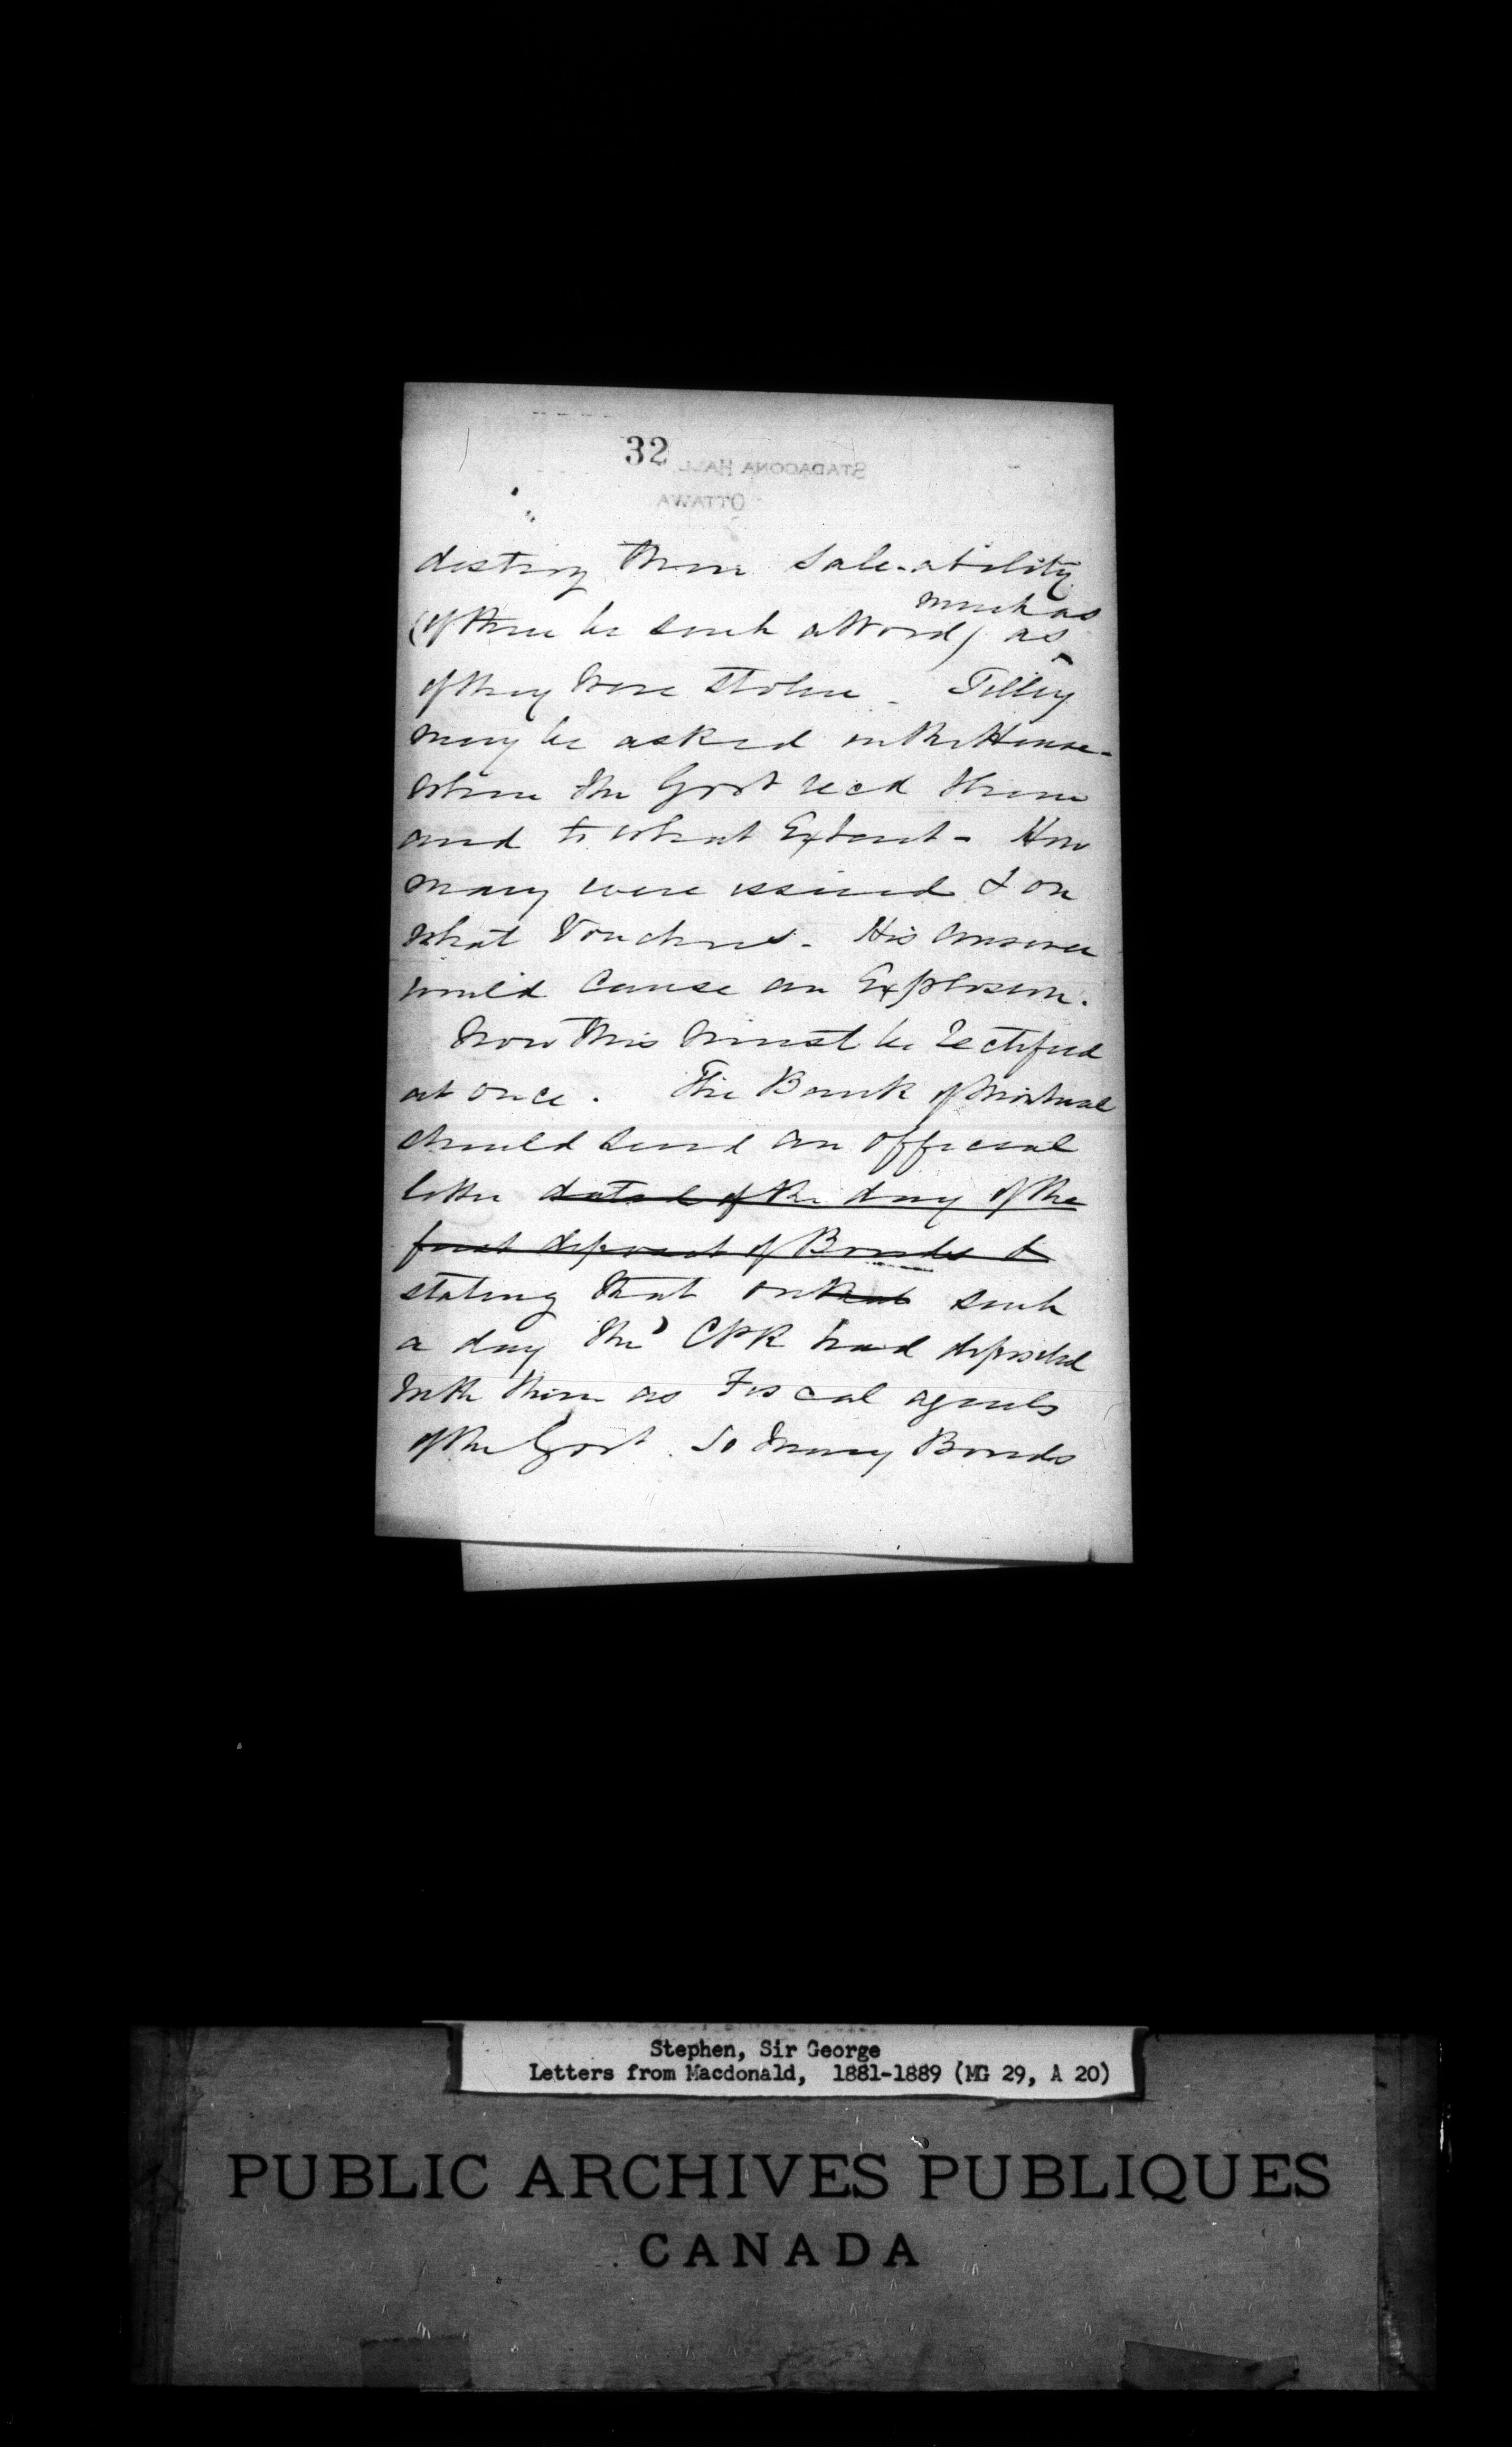 32
STADACONA HALL
OTTAWA
destroy their sale-ability
much as
(if there be such a Word) as
if they were stolen - Tilley
may be asked in the House -
when the Govt recd them
and to what Extent - How
many were issued & on
what Vouchers - His answer
would cause an Explosion.
Now this must be rectified
at once. The Bank of Montreal
should send an official
letter dated of the day of the
first deposit of Bonds &
stating that on that such
a day the CPR had deposited
with them as Fiscal agents
of the Govt. So many Bonds
Stephen, Sir George
Letters from Macdonald, 1881-1889 (MG 29, A 20)
PUBLIC ARCHIVES PUBLIQUES
CANADA